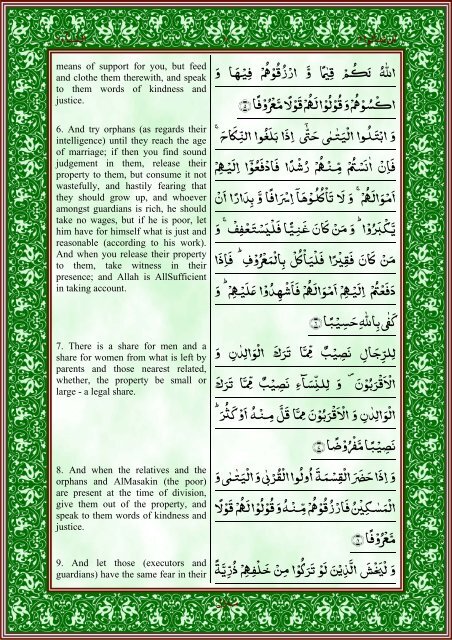 means of support for you, but feed
and clothe them therewith, and speak
to them words of kindness and
justice.
6. And try orphans (as regards their
intelligence) until they reach the age
of marriage; if then you find sound
judgement in them, release their
property to them, but consume it not
wastefully, and hastily fearing that
they should grow up, and whoever
amongst guardians is rich, he should
take no wages, but if he is poor, let
him have for himself what is just and
reasonable (according to his work).
And when you release their property
to them, take witness in their
presence; and Allah is AllSufficient
in taking account.
7. There is a share for men and a
share for women from what is left by
parents and those nearest related,
whether, the property be small or
large - a legal share.
8. And when the relatives and the
orphans and AlMasakin (the poor)
are present at the time of division,
give them out of the property, and
speak to them words of kindness and
justice.
9. And let those (executors and
guardians) have the same fear in their
اللّٰهُ لَكُمْ قِيٰمًا وَّ ارْزُقُوْهُمْ فِيْهَا وَ
اكْسُوْهُمْ وَ قُوْلُوْا لَهُمْ قَوْلًا مَّعْرُوْفًا
وَ ابْتَلُوا الْيَتٰمٰى حَتّٰۤى اِذَا بَلَغُوا النِّكَاحَ ۚ
فَاِنْ اٰنَسْتُمْ مِّنْهُمْ رُشْدًا فَادْفَعُوْۤا اِلَيْهِمْ
اَمْوَالَهُمْ ۚ وَ لَا تَاْكُلُوْهَاۤ اِسْرَافًا وَّ بِدَارًا اَنْ
يَّكْبَرُوْا ؕ وَ مَنْ كَانَ غَنِيًّا فَلْيَسْتَعْفِفْ ۚ وَ
مَنْ كَانَ فَقِيْرًا فَلْيَاْكُلْ بِالْمَعْرُوْفِ ؕ فَاِذَا
دَفَعْتُمْ اِلَيْهِمْ اَمْوَالَهُمْ فَاَشْهِدُوْا عَلَيْهِمْ ؕ وَ
كَفٰى بِاللّٰهِ حَسِيْبًا
لِلرِّجَالِ نَصِيْبٌ مِّمَّا تَرَكَ الْوَالِدٰنِ وَ
الْاَقْرَبُوْنَ ۪ وَ لِلنِّسَآءِ نَصِيْبٌ مِّمَّا تَرَكَ
الْوَالِدٰنِ وَ الْاَقْرَبُوْنَ مِمَّا قَلَّ مِنْهُ اَوْ كَثُرَ ؕ
نَصِيْبًا مَّفْرُوْضًا
وَ اِذَا حَضَرَ الْقِسْمَةَ اُولُوا الْقُرْبٰى وَ الْيَتٰمٰى وَ
الْمَسٰكِيْنُ فَارْزُقُوْهُمْ مِّنْهُ وَ قُوْلُوْا لَهُمْ قَوْلًا
مَّعْرُوْفًا
وَ لْيَخْشَ الَّذِيْنَ لَوْ تَرَكُوْا مِنْ خَلْفِهِمْ ذُرِّيَّةً